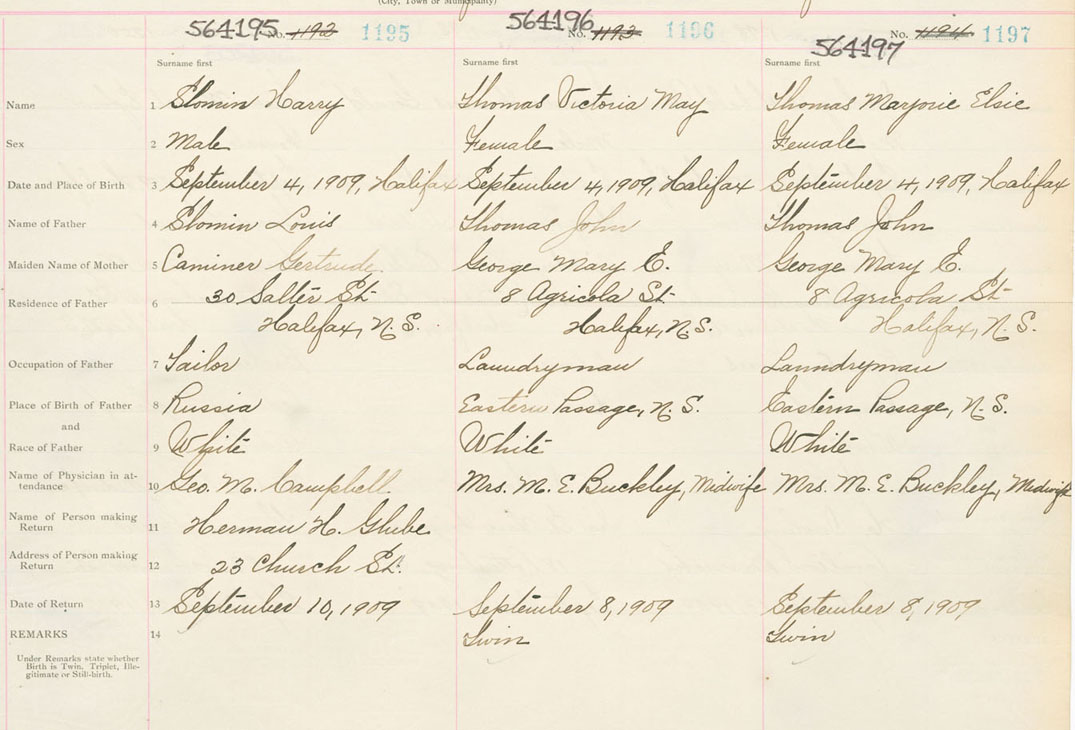 (City, Town or Municipality)
564195 No. 1192 1195 564196 No. 1193 1196 564197 No. 1194 1197
Surname first Surname first Surname first
Name 1 Slomin Harry Thomas Victoria May Thomas Marjorie Elsie
Sex 2 Male Female Female
Date and Place of Birth 3 September 4, 1909, Halifax September 4, 1909, Halifax September 4, 1909, Halifax
Name of Father 4 Slomin Louis Thomas John Thomas John
Maiden Name of Mother 5 Caminer Gertrude George Mary E. George Mary E.
Residence of Father 6 30 Salter St 8 Agricola St 8 Agricola St
Halifax, N.S. Halifax, N.S. Halifax, N.S.
Occupation of Father 7 Tailor Laundryman Laundryman
Place of Birth of Father 8 Russia Eastern Passage, N.S. Eastern Passage, N.S.
and
Race of Father 9 White White White
Name of Physician in at-
tendance 10 Geo. M. Campbell Mrs. M. E. Buckley, Midwife Mrs. M. E. Buckley, Midwife
Name of Person making
Return 11 Herman H. Glube
Address of Person making
Return 12 23 Church St.
Date of Return 13 September 10, 1909 September 8, 1909 September 8, 1909
REMARKS 14 Twin Twin
Under Remarks state whether
Birth is Twin. Triplet, Ille-
gitimate or Still-birth.